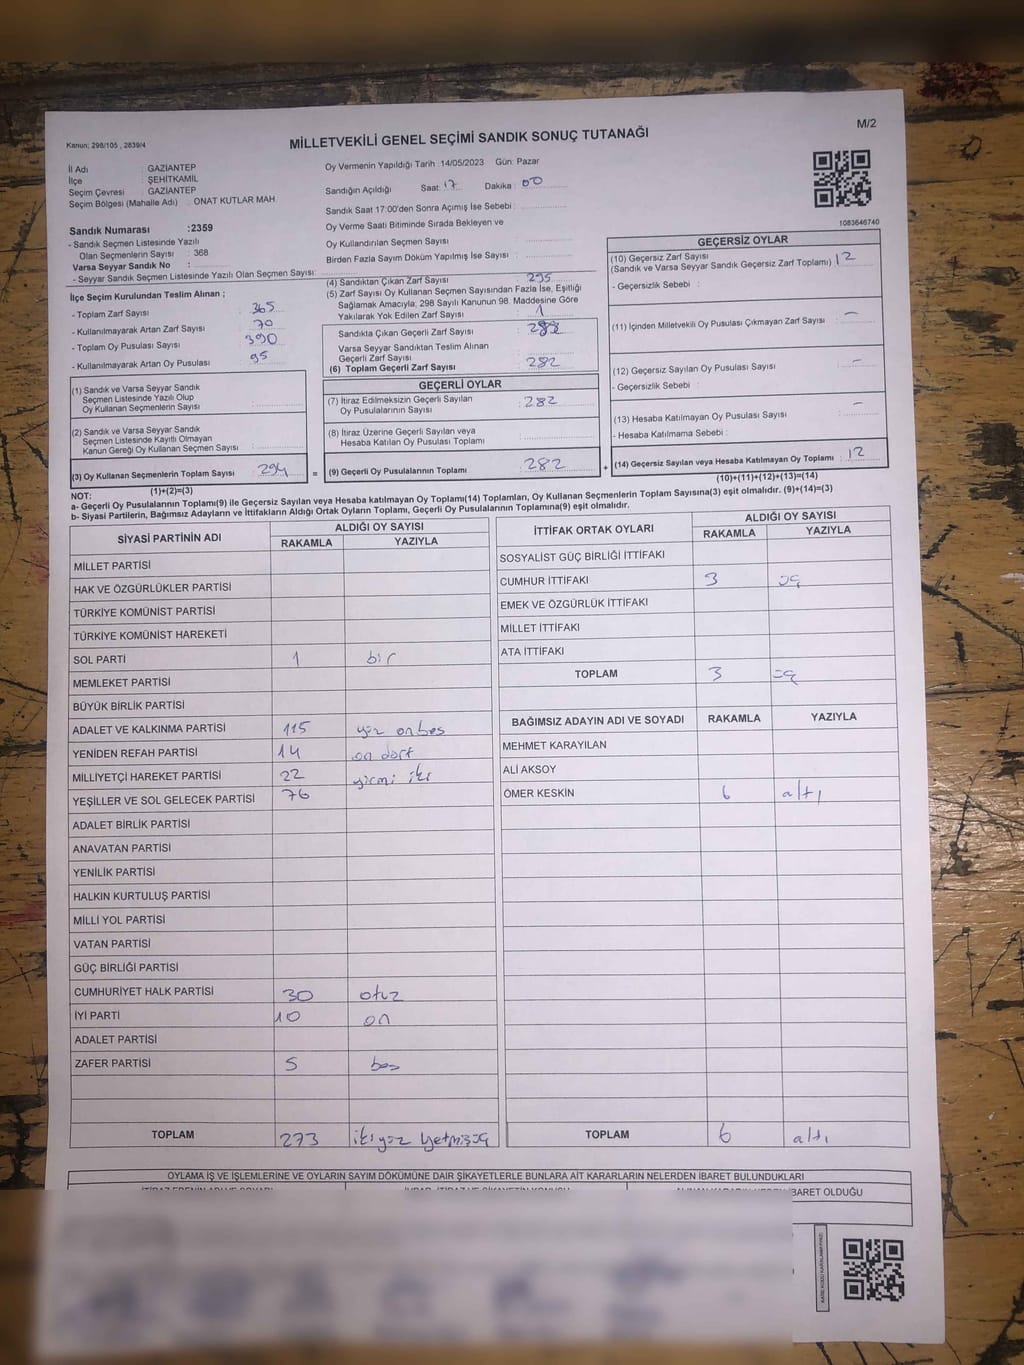 M/2
Kanun; 298/105 , 2839/4
MİLLETVEKİLİ GENEL SEÇİMİ SANDIK SONUÇ TUTANAĞI
İl Adı : GAZİANTEP
İlçe : ŞEHİTKAMİL
Seçim Çevresi : GAZİANTEP
Seçim Bölgesi (Mahalle Adı) : ONAT KUTLAR MAH.
Sandık Numarası :2359
- Sandık Seçmen Listesinde Yazılı
Olan Seçmenlerin Sayısı : 368
Varsa Seyyar Sandık No :
- Seyyar Sandık Seçmen Listesinde Yazılı Olan Seçmen Sayısı:
Oy Vermenin Yapıldığı Tarih :14/05/2023 Gün: Pazar
Sandığın Açıldığı Saat: 17 Dakika : 00
Sandık Saat 17:00'den Sonra Açımış İse Sebebi :
Oy Verme Saati Bitiminde Sırada Bekleyen ve
Oy Kullandırılan Seçmen Sayısı
Birden Fazla Sayım Döküm Yapılmış İse Sayısı :
1083646740
İlçe Seçim Kurulundan Teslim Alınan ;
- Toplam Zarf Sayısı : 365
- Kullanılmayarak Artan Zarf Sayısı : 70
- Toplam Oy Pusulası Sayısı : 390
- Kullanılmayarak Artan Oy Pusulası : 95
(1) Sandık ve Varsa Seyyar Sandık
Seçmen Listesinde Yazılı Olup
Oy Kullanan Seçmenlerin Sayısı :
(2) Sandık ve Varsa Seyyar Sandık
Seçmen Listesinde Kayıtlı Olmayan
Kanun Gereği Oy Kullanan Seçmen Sayısı :
(3) Oy Kullanan Seçmenlerin Toplam Sayısı : 294 =
(1)+(2)=(3)
(4) Sandıktan Çıkan Zarf Sayısı : 295
(5) Zarf Sayısı Oy Kullanan Seçmen Sayısından Fazla İse, Eşitliği
Sağlamak Amacıyla; 298 Sayılı Kanunun 98. Maddesine Göre
Yakılarak Yok Edilen Zarf Sayısı : 1
Sandıkta Çıkan Geçerli Zarf Sayısı :
Varsa Seyyar Sandıktan Teslim Alınan
Geçerli Zarf Sayısı :
(6) Toplam Geçerli Zarf Sayısı : 282
GEÇERLİ OYLAR
(7) İtiraz Edilmeksizin Geçerli Sayılan
Oy Pusulalarının Sayısı : 282
(8) İtiraz Üzerine Geçerli Sayılan veya
Hesaba Katılan Oy Pusulası Toplamı :
(9) Geçerli Oy Pusulalarının Toplamı : 282 +
GEÇERSİZ OYLAR
(10) Geçersiz Zarf Sayısı
(Sandık ve Varsa Seyyar Sandık Geçersiz Zarf Toplamı) : 12
- Geçersizlik Sebebi :
(11) İçinden Milletvekili Oy Pusulası Çıkmayan Zarf Sayısı : –
(12) Geçersiz Sayılan Oy Pusulası Sayısı : –
- Geçersizlik Sebebi :
(13) Hesaba Katılmayan Oy Pusulası Sayısı : –
- Hesaba Katılmama Sebebi :
(14) Geçersiz Sayılan veya Hesaba Katılmayan Oy Toplamı : 12
(10)+(11)+(12)+(13)=(14)
NOT:
a- Geçerli Oy Pusulalarının Toplamı(9) ile Geçersiz Sayılan veya Hesaba katılmayan Oy Toplamı(14) Toplamları, Oy Kullanan Seçmenlerin Toplam Sayısına(3) eşit olmalıdır. (9)+(14)=(3)
b- Siyasi Partilerin, Bağımsız Adayların ve İttifakların Aldığı Ortak Oyların Toplamı, Geçerli Oy Pusulalarının Toplamına(9) eşit olmalıdır.
SİYASİ PARTİNİN ADI ALDIĞI OY SAYISI
RAKAMLA YAZIYLA
MİLLET PARTİSİ
HAK VE ÖZGÜRLÜKLER PARTİSİ
TÜRKİYE KOMÜNİST PARTİSİ
TÜRKİYE KOMÜNİST HAREKETİ
SOL PARTİ 1 bir
MEMLEKET PARTİSİ
BÜYÜK BİRLİK PARTİSİ
ADALET VE KALKINMA PARTİSİ 115 yüz onbes
YENİDEN REFAH PARTİSİ 14 on dört
MİLLİYETÇİ HAREKET PARTİSİ 22 yirmi iki
YEŞİLLER VE SOL GELECEK PARTİSİ 76
ADALET BİRLİK PARTİSİ
ANAVATAN PARTİSİ
YENİLİK PARTİSİ
HALKIN KURTULUŞ PARTİSİ
MİLLİ YOL PARTİSİ
VATAN PARTİSİ
GÜÇ BİRLİĞİ PARTİSİ
CUMHURİYET HALK PARTİSİ 30 otuz
İYİ PARTİ 10 on
ADALET PARTİSİ
ZAFER PARTİSİ 5 bes
TOPLAM 273 ikiyüz yetmişüç
İTTİFAK ORTAK OYLARI ALDIĞI OY SAYISI
RAKAMLA YAZIYLA
SOSYALİST GÜÇ BİRLİĞİ İTTİFAKI
CUMHUR İTTİFAKI 3 üç
EMEK VE ÖZGÜRLÜK İTTİFAKI
MİLLET İTTİFAKI
ATA İTTİFAKI
TOPLAM 3 üç
BAĞIMSIZ ADAYIN ADI VE SOYADI RAKAMLA YAZIYLA
MEHMET KARAYILAN
ALİ AKSOY
ÖMER KESKİN 6 altı
TOPLAM 6 altı
OYLAMA İŞ VE İŞLEMLERİNE VE OYLARIN SAYIM DÖKÜMÜNE DAİR ŞİKAYETLERLE BUNLARA AİT KARARLARIN NELERDEN İBARET BULUNDUKLARI
İBARET OLDUĞU